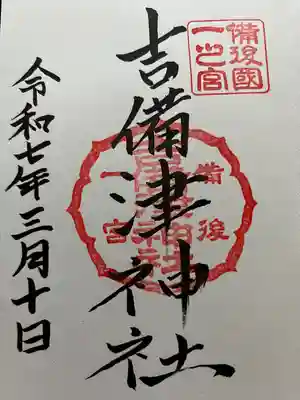 備後國
一之宮
吉備津神社
備後
一宮
令和七年三月十日